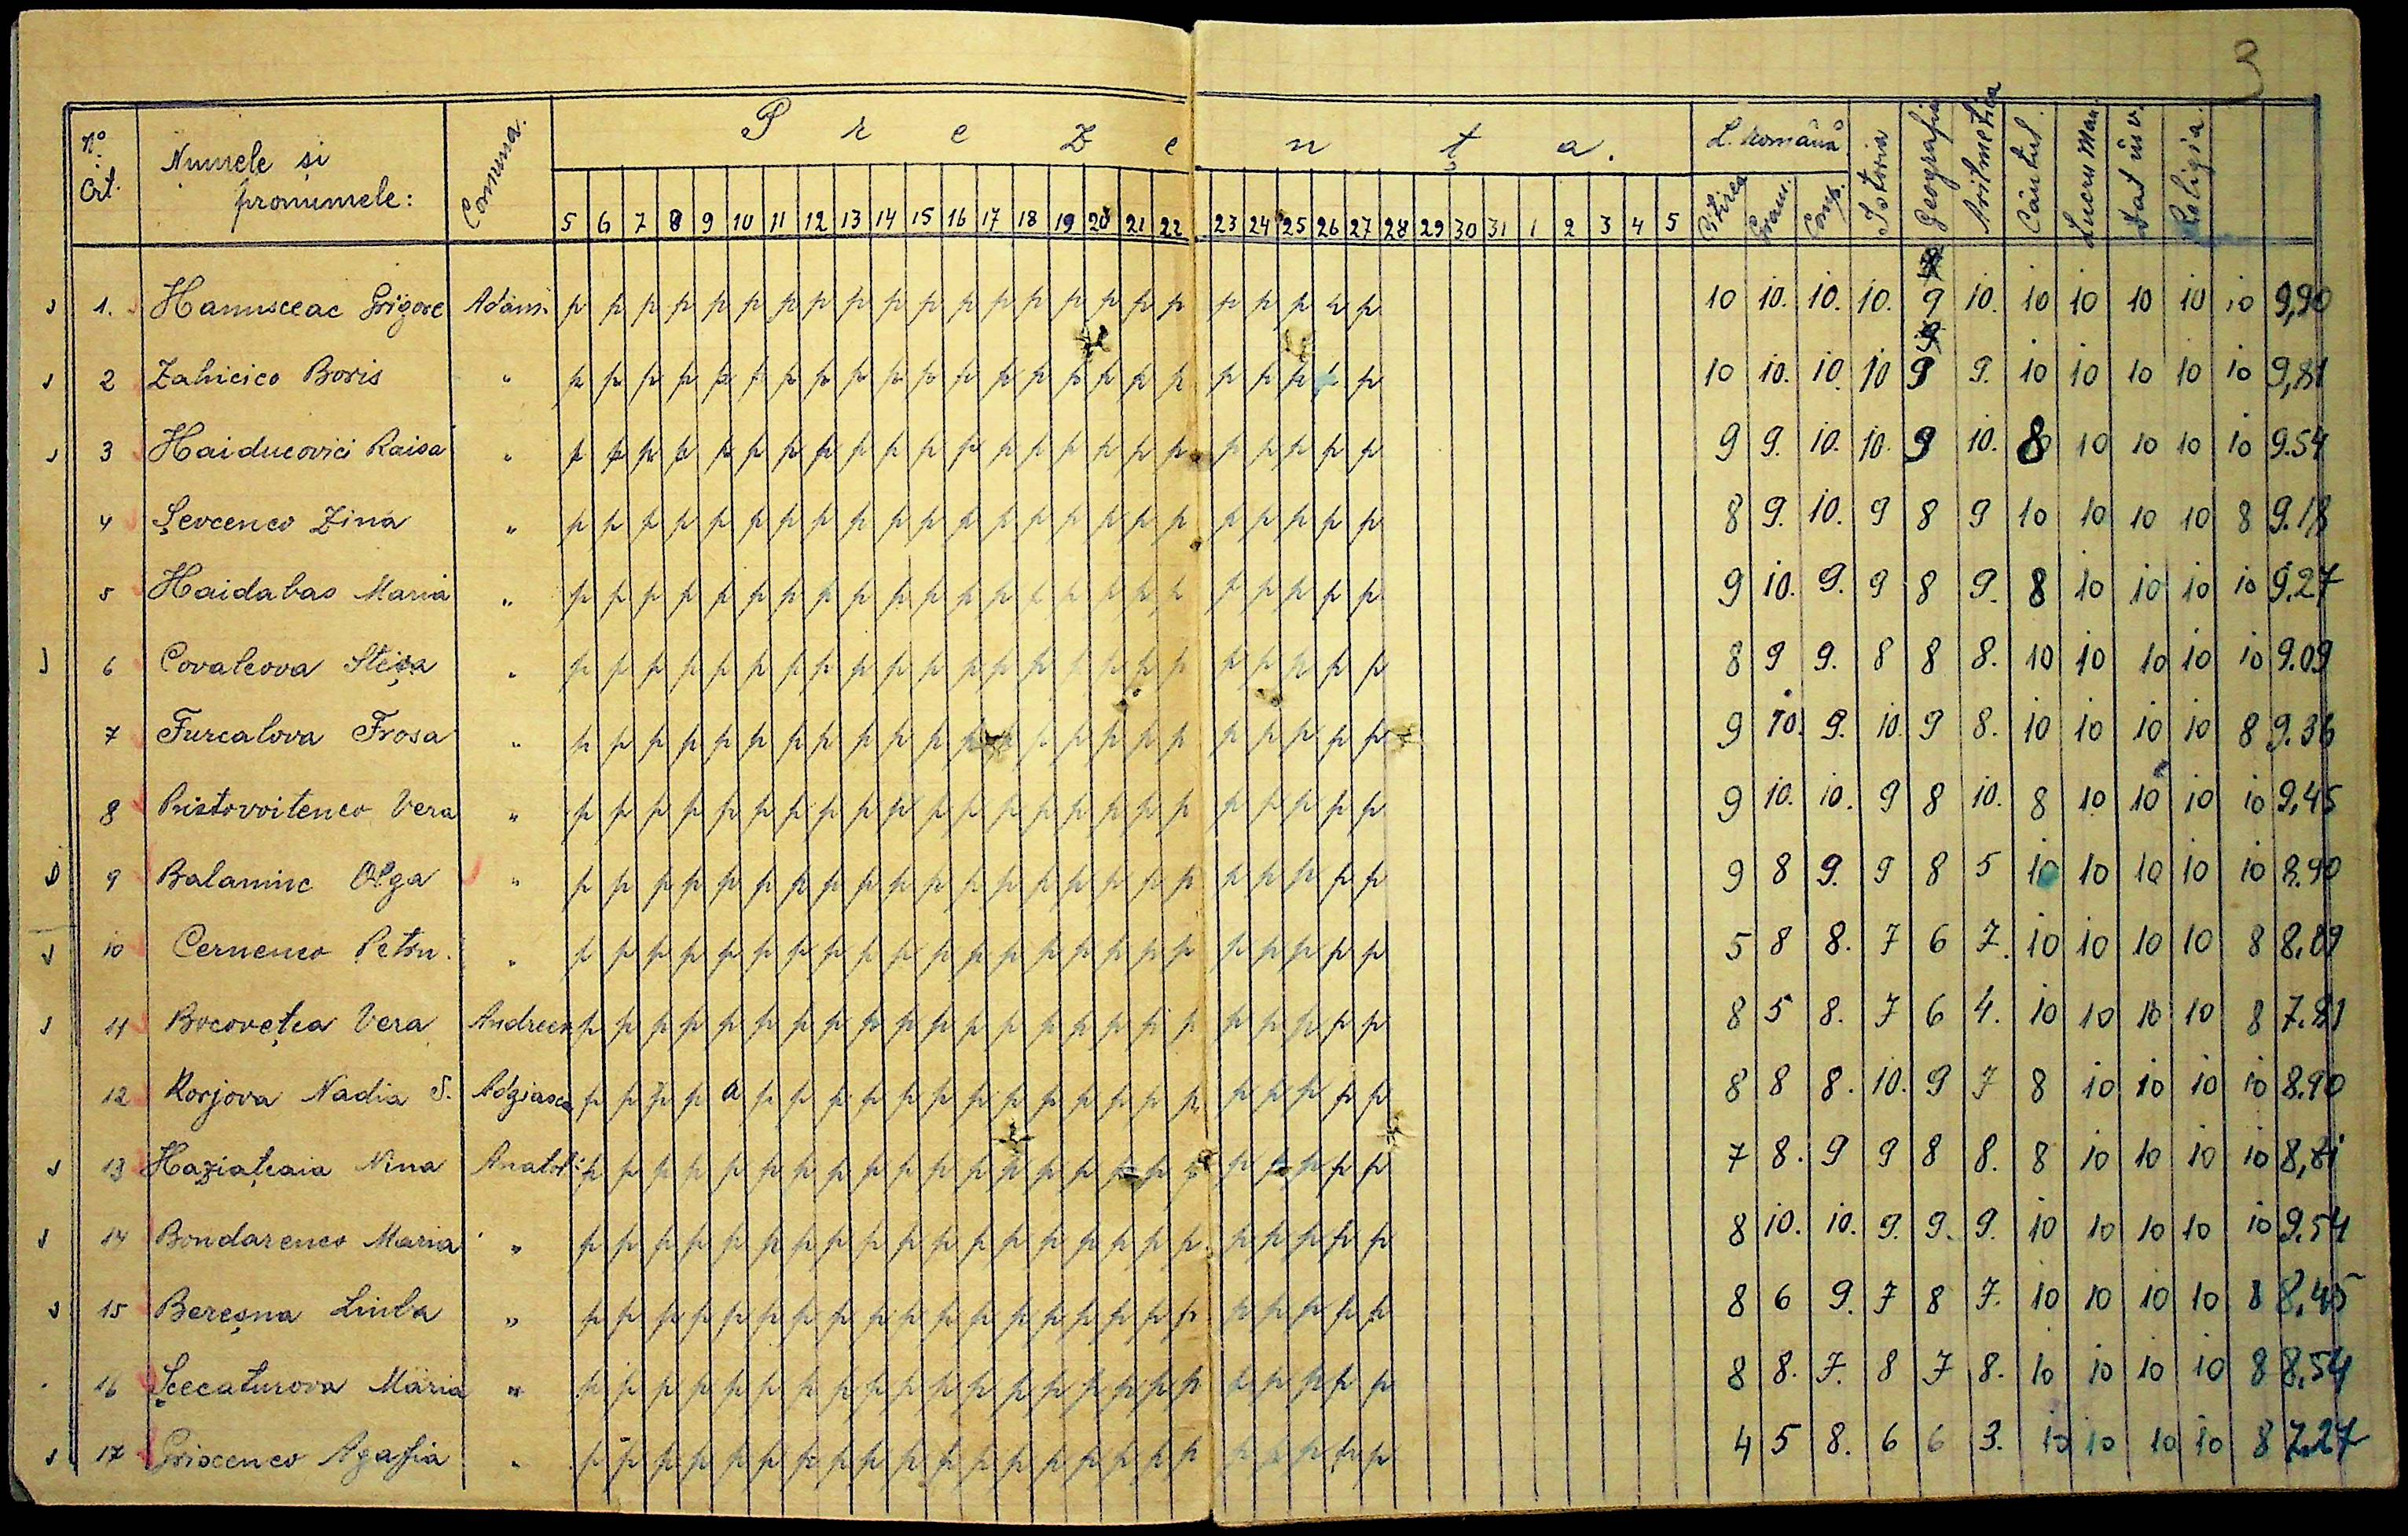 3
Nº Crt. Numele și pronumele: Comuna. Prezența. L. Română Istoria Geografia Aritmetica Cântul. Lucru Man. Dat înv. Religia
5 6 7 8 9 10 11 12 13 14 15 16 17 18 19 20 21 22 23 24 25 26 27 28 29 30 31 1 2 3 4 5 Citirea Gram. Comp.
1. Hanusceac Grigore Adămi p p p p p p p p p p p p p p p p p p p p p p p 10 10. 10. 10. 9 10. 10 10 10 10 10 9,90
2 Zahicico Boris " p p p p p p p p p p p p p p p p p p p p p p p 10 10. 10. 10 9 9. 10 10 10 10 10 9,81
3 Haiducovici Raisa " p p p p p p p p p p p p p p p p p p p p p p p 9 9. 10. 10. 9 10. 8 10 10 10 10 9.54
4 Șevcenco Zina " p p p p p p p p p p p p p p p p p p p p p p p 8 9. 10. 9 8 9 10 10 10 10 8 9.18
5 Haidabas Maria " p p p p p p p p p p p p p p p p p p p p p p p 9 10. 9. 9 8 9. 8 10 10 10 10 9.27
6 Covaleova " p p p p p p p p p p p p p p p p p p p p p p p 8 9 9. 8 8 8. 10 10 10 10 10 9.09
7 Furcalova Frosa " p p p p p p p p p p p p p p p p p p p p p p p 9 10. 9. 10. 9 8. 10 10 10 10 8 9.36
8 Pustovoitenco Vera " p p p p p p p p p p p p p p p p p p p p p p p 9 10. 10. 9 8 10. 8 10 10 10 10 9,45
9 Balaminc Olga " p p p p p p p p p p p p p p p p p p p p p p p 9 8 9. 9 8 5 10 10 10 10 10 8.90
10 Cernenco Petru. " p p p p p p p p p p p p p p p p p p p p p p p 5 8 8. 7 6 7. 10 10 10 10 8 8,09
11 Bocovețca Vera Andreen p p p p p p p p p p p p p p p p p p p p p p p 8 5 8. 7 6 4. 10 10 10 10 8 7.81
12 Korjova Nadia S. Adgiasca p p p p a p p p p p p p p p p p p p p p p p p 8 8 8. 10. 9 7 8 10 10 10 10 8.90
13 Haziațcaia Nina Anatol. p p p p p p p p p p p p p p p p p p p p p p p 7 8. 9 9 8 8. 8 10 10 10 10 8,81
14 Bondarenco Maria " p p p p p p p p p p p p p p p p p p p p p p p 8 10. 10. 9. 9. 9. 10 10 10 10 10 9.54
15 Bereșna Liuba " p p p p p p p p p p p p p p p p p p p p p p p 8 6 9. 7 8 7. 10 10 10 10 8 8,45
16 Șcecaturova Maria " p p p p p p p p p p p p p p p p p p p p p p p 8 8. 7. 8 7 8. 10 10 10 10 8 8.54
17 Grișcenco Agafia " p p p p p p p p p p p p p p p p p p p p p p p 4 5 8. 6 6 3. 10 10 10 10 8 7.27